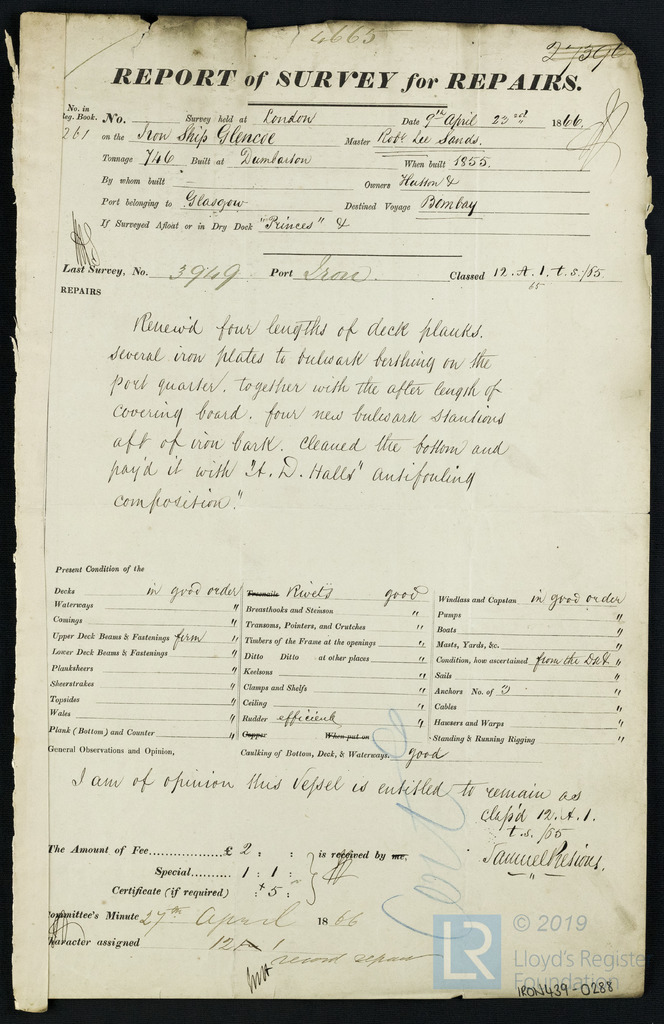 4665
REPORT of SURVEY for REPAIRS.
No. in Reg. Book. No. Survey held at London Date 9th April 23rd 1866
261 on the Iron Ship Glencoe Master Robt Lee Sands.
Tonnage 746 Built at Dumbarton When built 1855.
By whom built Owners Hutson &
Port belonging to Glasgow Destined Voyage Bombay
If Surveyed Afloat or in Dry Dock "Princes" &
Last Survey, No. 3949 Port Iron. Classed 12. A. 1. t. s. /55
65
REPAIRS
Renew'd four lengths of deck planks.
several iron plates to bulwark berthing on the
port quarter. together with the after length of
covering board. four new bulwark stantions
aft of iron bark. cleaned the bottom and
pay'd it with "H. D. Halls" antifouling
composition."
Present Condition of the
Decks in good order Treenails Rivets good Windlass and Capstan in good order
Waterways " Breasthooks and Stemson " Pumps "
Comings " Transoms, Pointers, and Crutches " Boats "
Upper Deck Beams & Fastenings firm Timbers of the Frame at the openings " Masts, Yards, &c. "
Lower Deck Beams & Fastenings " Ditto Ditto at other places " Condition, how ascertained from the Dk "
Planksheers " Keelsons " Sails "
Sheerstrakes " Clamps and Shelfs " Anchors No. of 3 "
Topsides " Ceiling " Cables "
Wales " Rudder efficient Hawsers and Warps "
Plank (Bottom) and Counter " Copper When put on " Standing & Running Rigging "
General Observations and Opinion, Caulking of Bottom, Deck, & Waterways. good
I am of opinion this Vessel is entitled to remain as
clas'd 12. A. 1.
t. s. /55
The Amount of Fee............... £ 2 : : is received by me,
Special......... 1 : 1 : Samuel
Certificate (if required) : 5 :
Committee's Minute 27th April 1866
Character assigned 12 A 1
record repairs
LR © 2019
Lloyd's Register
Foundation
IRON439-0288